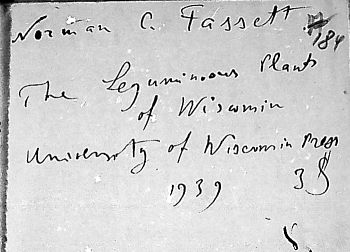 Norman C. Fassett
184
The Leguminous Plants
of Wisconsin
University of Wisconsin Press
1939 3$